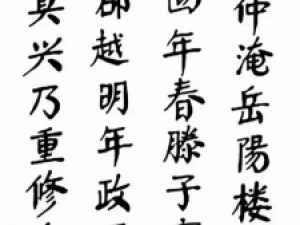 仲淹岳陽楼
四年春滕子
郡越明年政
具兴乃重修